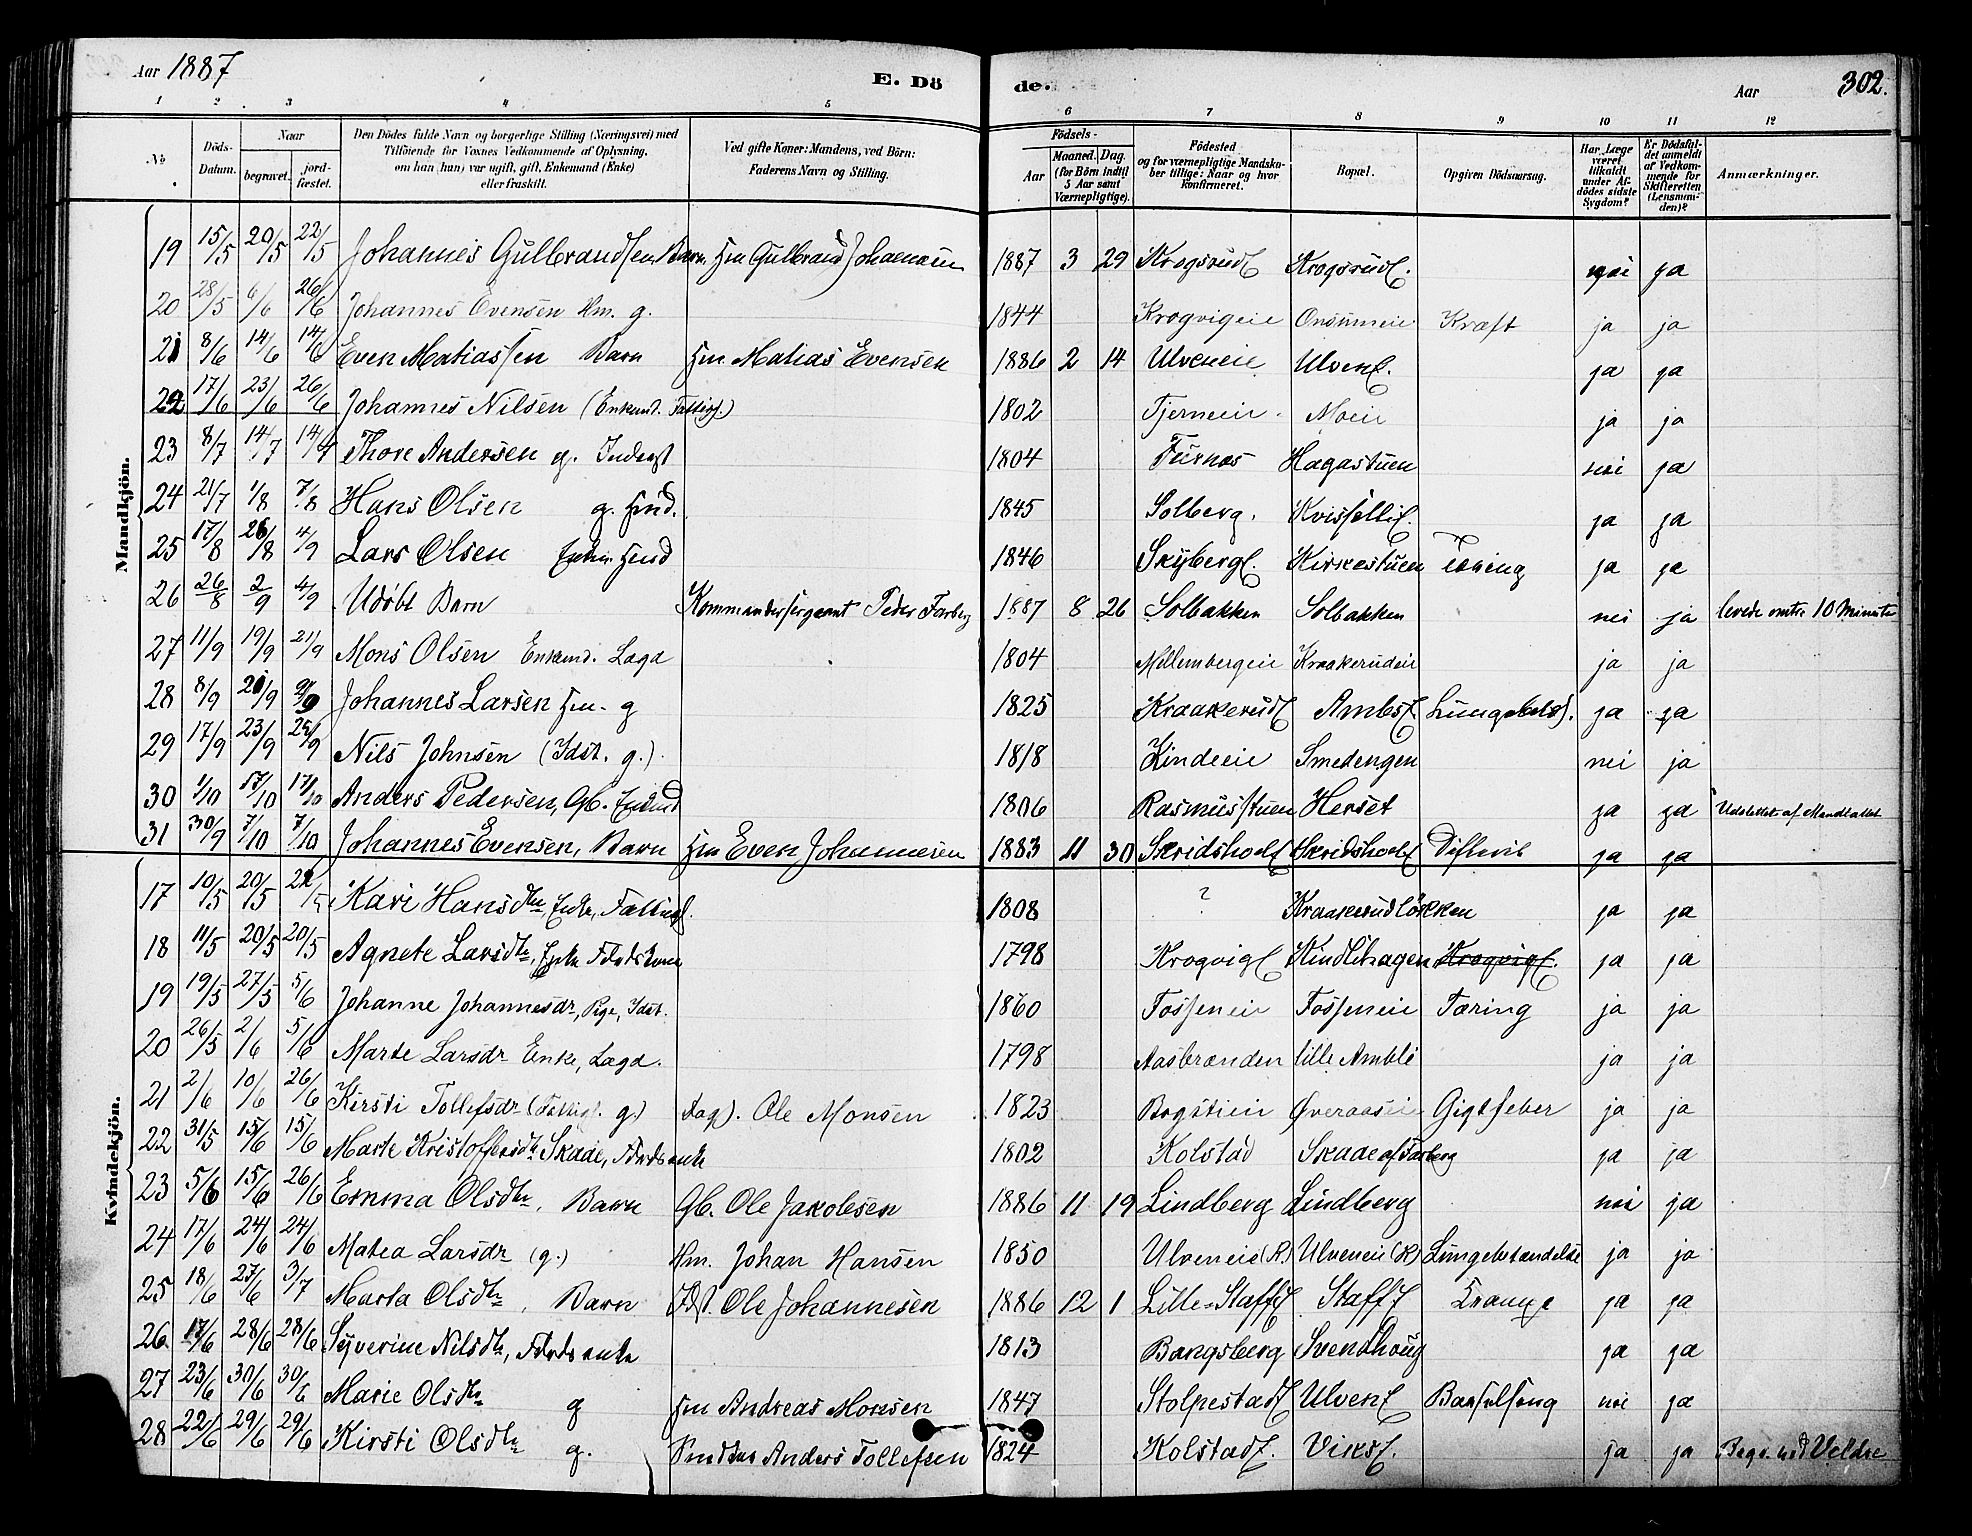 Aar 1887 E. Dö de. Aar 302.
1 2 3 4 5 6 7 8 9 10 11 12
No Döds-Datum. Naar begravet. jord-fæstet. Den Dödes fulde Navn og borgerlige Stilling (Næringsvei) med Tilföiende for Voxnes Vedkommende af Oplysning, om han (hun) var ugift, gift, Enkemand (Enke) eller fraskilt. Ved gifte Koner: Mandens, ved Börn: Faderens Navn og Stilling. Födsels- Aar Maaned. Dag. (for Börn indtil 5 Aar samt Værnepligtige). Födested og for værnepligtige Mandskaber tillige: Naar og hvor konfirmeret. Bopæl. Opgiven Dödsaarsag. Har Læge været tilkaldt under Afdödes sidste Sygdom? Er Dödsfaldet anmeldt af Vedkommende for Skifteretten (Lensmanden)? Anmærkninger.
Mandkjön.
19 15/5 20/5 22/5 Johannes Gulbrandsen Barn Hm Gulbrand Johannesen 1887 3 29 Krogsrudf Krogsrudf. nei ja
20 28/5 6/6 26/6 Johannes Evensen Hm. g. 1844 Krogvigeie Onsumeie Kræft ja ja
21 8/6 14/6 14/6 Even Matiassen Barn Hm Matias Evensen 1886 2 14 Ulveneie Ulvenf. ja ja
22 17/6 23/6 26/6 Johannes Nilsen (Enkemd. Fattigf.) 1802 Tjerneeie Moeie ja ja
23 8/7 14/7 14/7 Thore Andersen g. Inderst 1804 Furnæs Hagastuen nei ja
24 21/7 1/8 7/8 Hans Olsen g. Hmd. 1845 Solberg. ja ja
25 17/8 26/8 4/9 Lars Olsen Enkm. Hmd 1846 Skybergf. Kirkestuen Tæring ja ja
26 26/8 2/9 4/9 Udöbt Barn Kommandersergeant Peder Farberg 1887 8 26 Solbakken Solbakken nei ja levede omtr. 10 Minuter
27 11/9 19/9 21/9 Mons Olsen Enkemd. Lægd 1804 Mellembergeie Kraakerudeie ja ja
28 8/9 21/9 Johannes Larsen Hm. g 1825 Kraakerudf Amblf. Lungebetændf. ja ja
29 17/9 23/9 25/9 Nils Johnsen (Idst. g.) 1818 Kindeeie Smedengen nei ja
30 1/10 17/10 17/10 Anders Pedersen, Gb. Enkmd 1806 Rasmusstuen Herset ja ja Udslettet af Mandtallet
31 30/9 7/10 7/10 Johannes Evensen, Barn Hm Even Johannesen 1883 11 30 Skridsholf Skridsholf Difterit ja ja
Kvindekjön.
17 10/5 20/5 Kari Hansdtr, Enke, Fattigf. 1808 ? Kraakerudlökken ja ja
18 11/5 20/5 20/5 Agnete Larsdtr, Enke Fdrdskone 1798 Krogvigf Kindlihagen Krogvigf. ja ja
19 19/5 27/5 5/6 Johanne Johannesdr, Pige, Idst. 1860 Fosseneie Fosseneie Tæring ja ja
20 26/5 2/6 5/6 Marte Larsdr Enke, Lægd. 1798 Aasbrænden lille Amble ja ja
21 2/6 10/6 26/6 Kirsti Tollefsdr (Fattigf. g.) Dagl. Ole Monsen 1823 Bogstien Øveraaseie Gigtfeber ja ja
22 31/5 15/6 15/6 Marte Kristoffersdtr Skade, Fdrdsenke 1802 Kolstad Skade af Farberg ja ja
23 5/6 15/6 26/6 Emma Olsdtr, Barn Gb. Ole Jakobsen 1886 11 19 Lindberg Lindberg nei ja
24 17/6 24/6 24/6 Matea Larsdr (g.) Hm. Johan Hansen 1850 Ulveneie (R) Ulveneie (R) Lungebetændelse ja ja
25 18/6 27/6 3/7 Marta Olsdtr, Barn Idst. Ole Johannesen 1886 12 1 Lille-Staff Staff Krampe ja ja
26 17/6 28/6 28/6 Syverine Nilsdtr, Fdrdsenke 1813 Bangsberg Svendhoug ja ja
27 23/6 30/6 30/6 Marie Olsdtr g Hm Andreas Monsen 1847 Stolpestadf Ulvenf Barselseng nei ja
28 22/6 29/6 29/6 Kirsti Olsdtr g. Anders Tollefsen 1824 Kolstadf. Viksf. ja ja Begr. ved Veldre